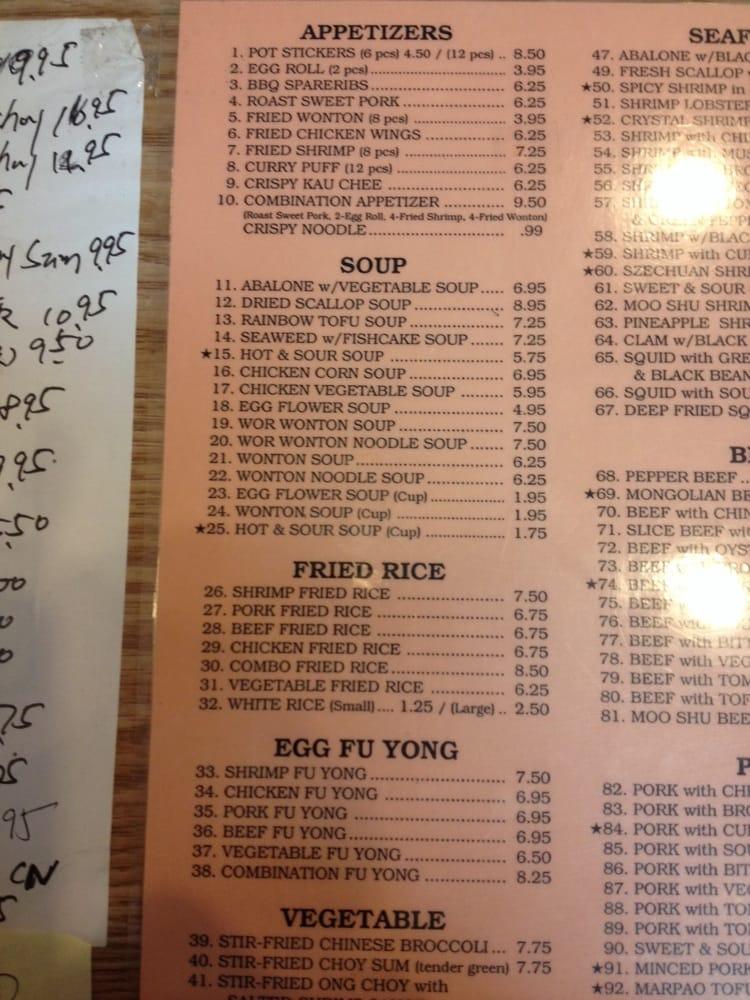 19.95
hoy 16.95
95
Sum 9.95
10.95
9.50
8.95
9.95
.50
00
0
0
75
5
95
CN
5
APPETIZERS
1. POT STICKERS (6 pcs) 4.50 / (12 pcs) .. 8.50
2. EGG ROLL (2 pcs) 3.95
3. BBQ SPARERIBS 6.25
4. ROAST SWEET PORK 6.25
5. FRIED WONTON (8 pcs) 3.95
6. FRIED CHICKEN WINGS 6.25
7. FRIED SHRIMP (8 pcs) 7.25
8. CURRY PUFF (12 pcs) 6.25
9. CRISPY KAU CHEE 6.25
10. COMBINATION APPETIZER 9.50
(Roast Sweet Pork, 2-Egg Roll, 4-Fried Shrimp, 4-Fried Wonton)
CRISPY NOODLE .99
SOUP
11. ABALONE w/VEGETABLE SOUP 6.95
12. DRIED SCALLOP SOUP 8.95
13. RAINBOW TOFU SOUP 7.25
14. SEAWEED w/FISHCAKE SOUP 7.25
★15. HOT & SOUR SOUP 5.75
16. CHICKEN CORN SOUP 6.95
17. CHICKEN VEGETABLE SOUP 5.95
18. EGG FLOWER SOUP 4.95
19. WOR WONTON SOUP 7.50
20. WOR WONTON NOODLE SOUP 7.50
21. WONTON SOUP 6.25
22. WONTON NOODLE SOUP 6.25
23. EGG FLOWER SOUP (Cup) 1.95
24. WONTON SOUP (Cup) 1.95
★25. HOT & SOUR SOUP (Cup) 1.75
FRIED RICE
26. SHRIMP FRIED RICE 7.50
27. PORK FRIED RICE 6.75
28. BEEF FRIED RICE 6.75
29. CHICKEN FRIED RICE 6.75
30. COMBO FRIED RICE 8.50
31. VEGETABLE FRIED RICE 6.25
32. WHITE RICE (Small).... 1.25 / (Large) .. 2.50
EGG FU YONG
33. SHRIMP FU YONG 7.50
34. CHICKEN FU YONG 6.95
35. PORK FU YONG 6.95
36. BEEF FU YONG 6.95
37. VEGETABLE FU YONG 6.50
38. COMBINATION FU YONG 8.25
VEGETABLE
39. STIR-FRIED CHINESE BROCCOLI ... 7.75
40. STIR-FRIED CHOY SUM (tender green) 7.75
41. STIR-FRIED ONG CHOY with
SEAF
47. ABALONE w/BLAC
49. FRESH SCALLOP
★50. SPICY SHRIMP in
51. SHRIMP LOBSTER
★52. CRYSTAL SHRIMP
53. SHRIMP with CHI
54. SHRIMP with MUS
55.
56.
57.
58. SHRIMP w/BLAC
★59. SHRIMP with CU
★60. SZECHUAN SHRI
61. SWEET & SOUR
62. MOO SHU SHRIM
63. PINEAPPLE SHR
64. CLAM w/BLACK
65. SQUID with GRE
& BLACK BEAN
66. SQUID with SOU
67. DEEP FRIED SQ
B
68. PEPPER BEEF ..
★69. MONGOLIAN BE
70. BEEF with CHIN
71. SLICE BEEF wit
72. BEEF with OYST
73. BEEF
★74. BEEF
75. BEEF
76. BEEF
77. BEEF with BITT
78. BEEF with VEG
79. BEEF with TOM
80. BEEF with TOF
81. MOO SHU BEE
P
82. PORK with CHI
83. PORK with BRO
★84. PORK with CU
85. PORK with SOU
86. PORK with BIT
87. PORK with VEG
88. PORK with TOM
89. PORK with TO
90. SWEET & SOU
★91. MINCED PORK
★92. MARPAO TOFU